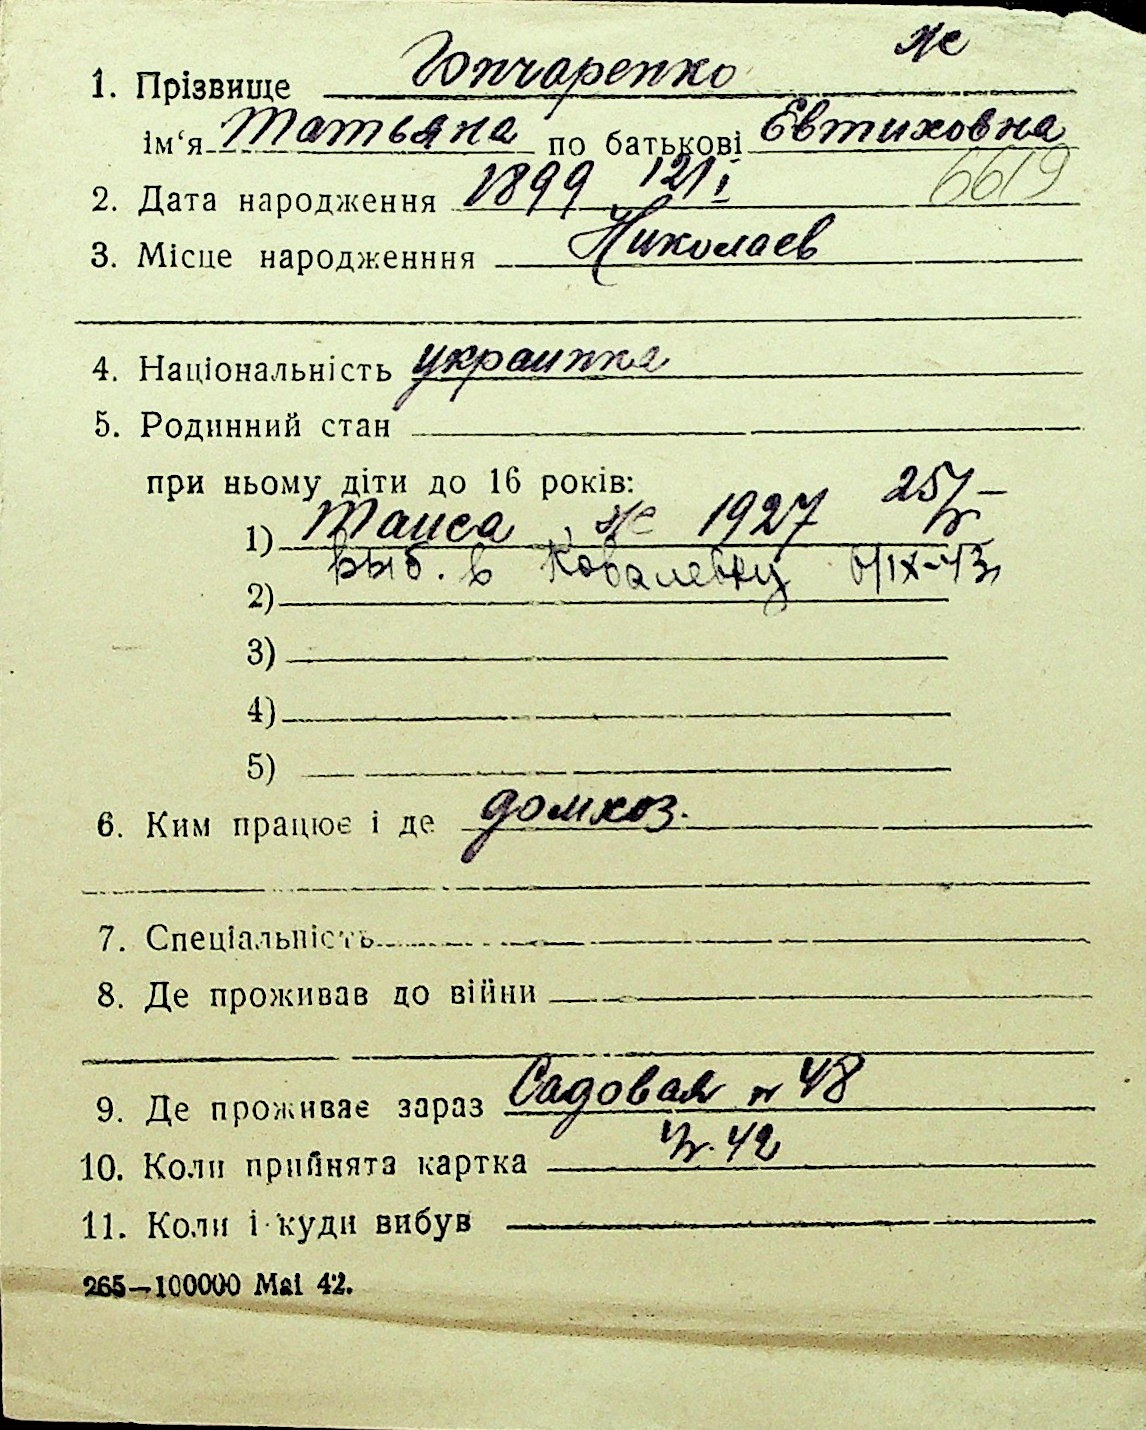 же
1. Прізвище Гончаренко
ім‘я Татьяна по батькові Евтиховна
2. Дата народження 1899 12/I 6619
3. Місце народженння Николаев
4. Національність украинка
5. Родинний стан
при ньому діти до 16 років:
1) Таиса, ж 1927 25/
выб. в Ковалевку 6/IX-43
2)
3)
4)
5)
6. Ким працює і де домхоз.
7. Спеціальність
8. Де проживав до війни
9. Де проживає зараз Садовая № 48
10. Коли прийнята картка 42
11. Коли і куди вибув
265—100000 Маі 42.